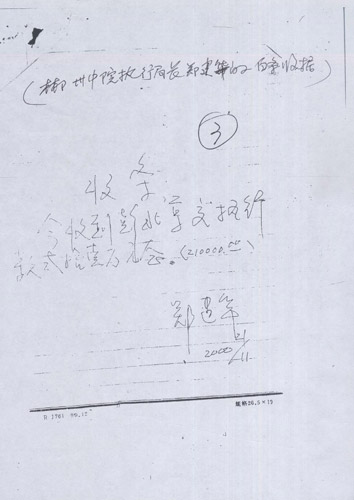 (郴州中院执行局长郑建军的白条收据)
③
收条
今收到彭北京交执行
款贰拾壹万元整。(210000.00)
郑建军
21/11
2000
B 1761 99.12
规格26.5×19